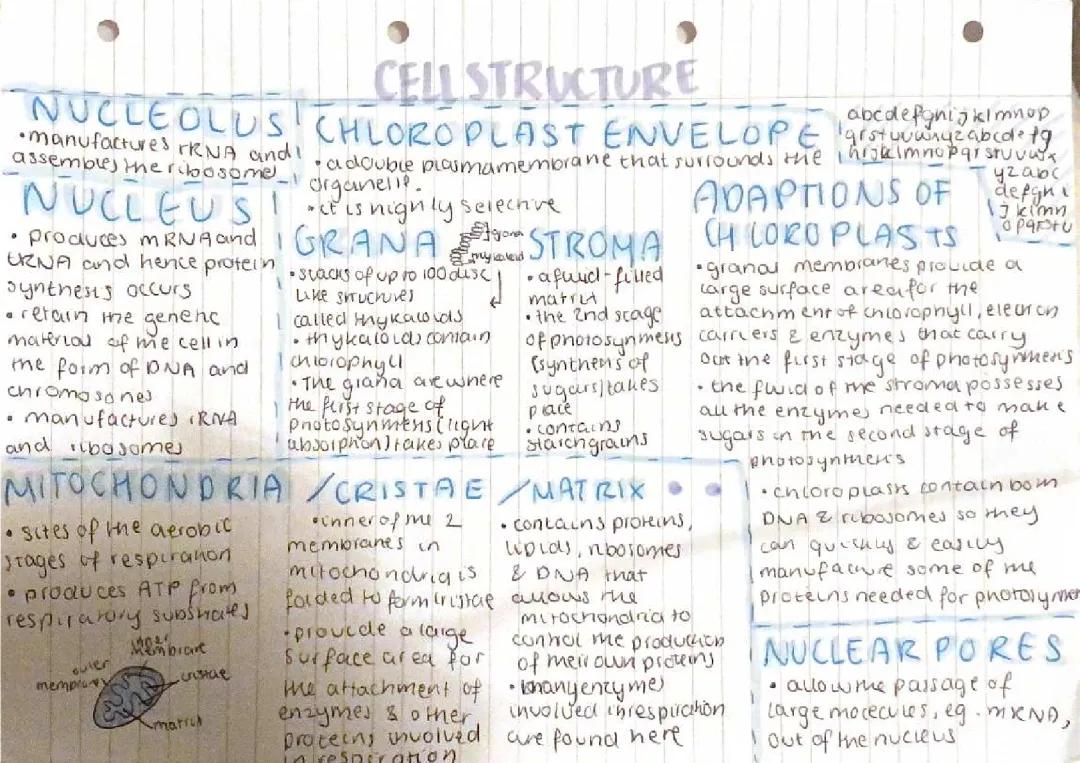 CELL STRUCTURE
NUCLEOLUS
• manufactures rRNA and
assembles the ribosomes
NUCLEUS
• produces mRNA and
tRNA and hence protein
synthesis occurs
• retain the genetic
material of the cell in
the form of DNA and
chromosones
• manufactures rRNA
and ribosomes
CHLOROPLAST ENVELOPE
• a double plasma membrane that surrounds the
organelle.
• it is highly selective
abcdefghijklmnop
qrstuvwxyzabcdefg
hijklmnopqrstuvwx
yzabc
defghi
jklmn
opqrstu
GRANA
grana
thylakoid
• stacks of up to 100 disc
like structures
called thykaloids
• thykaloids contain
chlorophyll
• The grana are where
the first stage of
photosynthesis (light
absorption) takes place
STROMA
• a fluid-filled
matrix
• the 2nd stage
of photosynthesis
(synthesis of
sugars) takes
place
• contains
starch grains
ADAPTIONS OF
CHLOROPLASTS
• granal membranes provide a
large surface area for the
attachment of chlorophyll, electron
carriers & enzymes that carry
out the first stage of photosynthesis
• the fluid of the stroma possesses
all the enzymes needed to make
sugars in the second stage of
photosynthesis
• chloroplasts contain both
DNA & ribosomes so they
can quickly & easily
manufacture some of the
proteins needed for photosynthe
MITOCHONDRIA
• sites of the aerobic
stages of respiration
• produces ATP from
respiratory substrates
inner
membrane
outer
membrane
cristae
matrix
/CRISTAE
• inner of the 2
membranes in
mitochondria is
folded to form cristae
• provide a large
surface area for
the attachment of
enzymes & other
proteins involved
in respiration
/MATRIX
• contains proteins,
lipids, ribosomes
& DNA that
allows the
mitochondria to
control the production
of their own proteins
• many enzymes
involved in respiration
are found here
NUCLEAR PORES
• allow the passage of
large molecules, eg. mRNA,
out of the nucleus